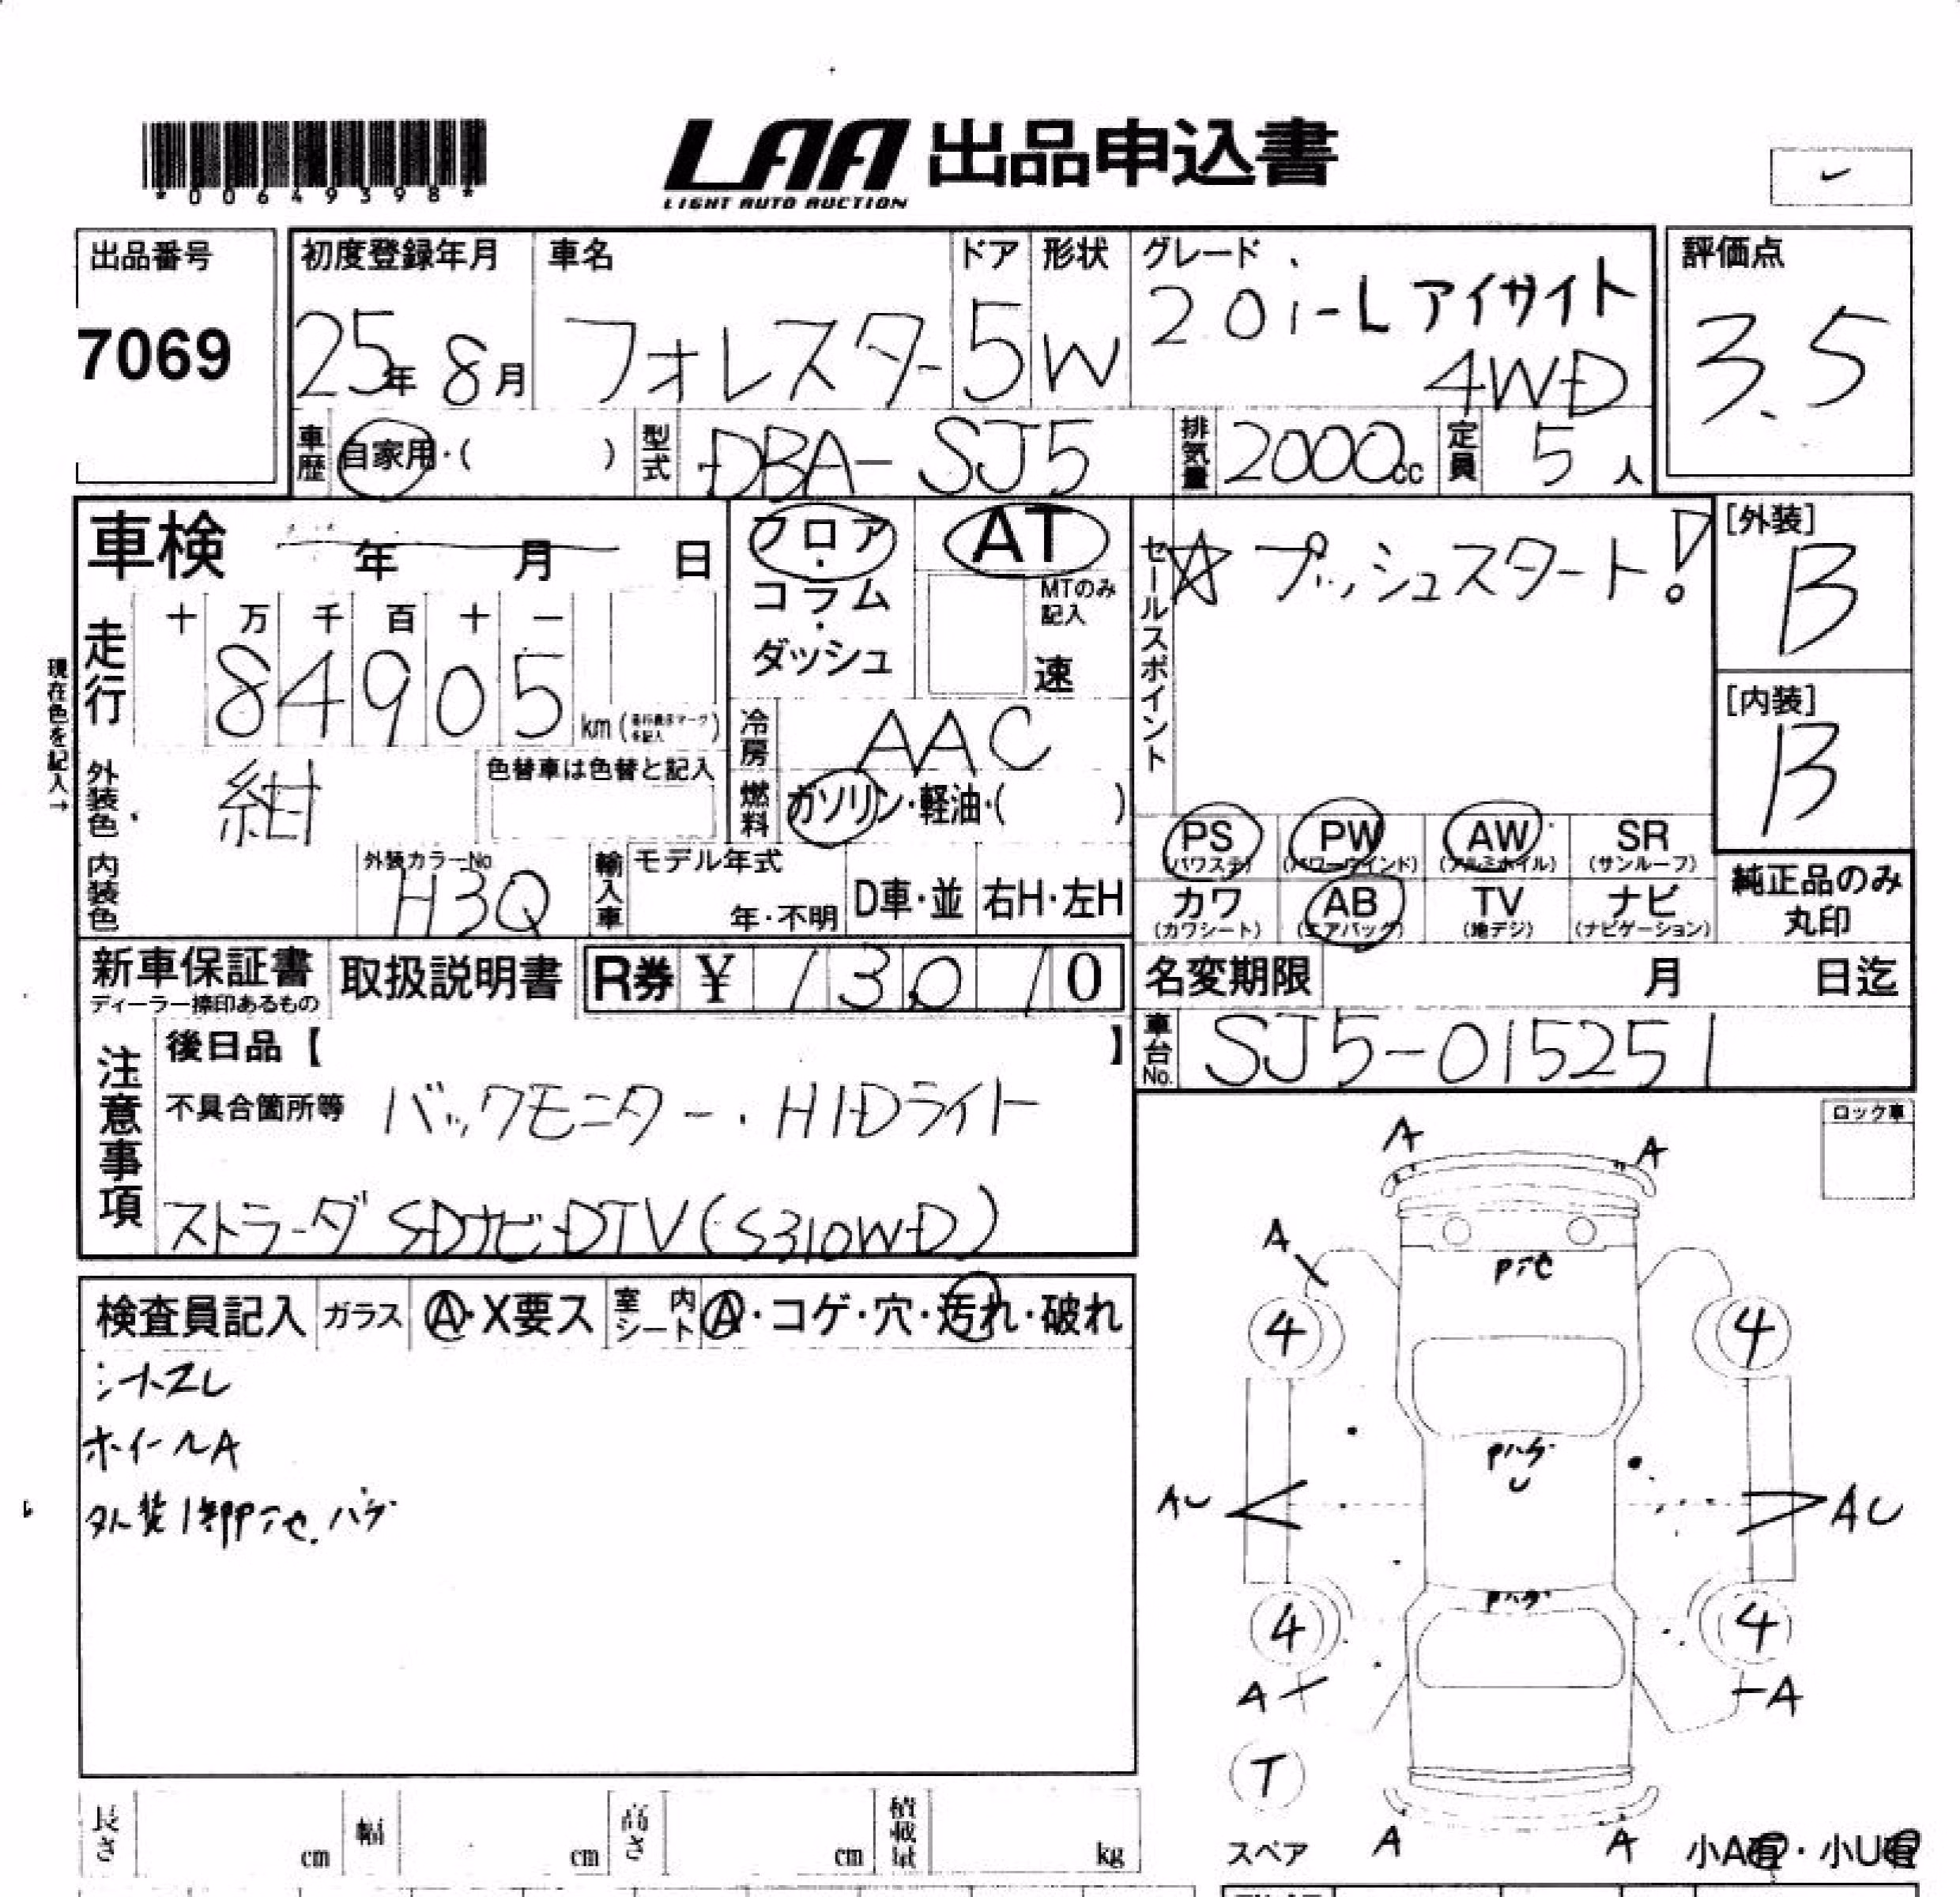 *00649398*
LAA 出品申込書
LIGHT AUTO AUCTION
出品番号
7069
初度登録年月
25年 8月
車名
フォレスター
ドア
5
形状
W
グレード
2.0i-L アイサイト
4WD
評価点
3.5
車歴
自家用・( )
型式
DBA-SJ5
排気量
2000cc
定員
5人
車検 年 月 日
フロア・
コラム・
ダッシュ
AT
MTのみ
記入
速
セールスポイント
☆プッシュスタート!
[外装]
B
[内装]
B
現在色を記入→
走行
十 万 千 百 十 一
8 4 9 0 5 km
冷房
AAC
外装色
紺
色替車は色替と記入
燃料
ガソリン・軽油・( )
内装色
外装カラーNo
H3Q
輸入車
モデル年式
年・不明
D車・並
右H・左H
PS
(パワステ)
PW
(パワーウインド)
AW
(アルミホイル)
SR
(サンルーフ)
カワ
(カワシート)
AB
(エアバック)
TV
(地デジ)
ナビ
(ナビゲーション)
純正品のみ
丸印
新車保証書
ディーラー捺印あるもの
取扱説明書
R券 ¥ 1 3 0 1 0
名変期限 月 日迄
車台No.
SJ5-015251
注意事項
後日品【 】
不具合箇所等 バックモニター・HIDライト
ストラーダSDナビ・DTV(S310WD)
ロック車
検査員記入
ガラス
A・X要ス
室内シート
A・コゲ・穴・汚れ・破れ
シートスレ
ホイールA
外装1部Pテセ.ハゲ
A
A
A
Pテセ
4
4
Pハゲ
U
AU
AU
Pハゲ
4
4
A
A
T
スペア
A
A
小A有・小U有
長さ cm
幅 cm
高さ cm
積載量 kg